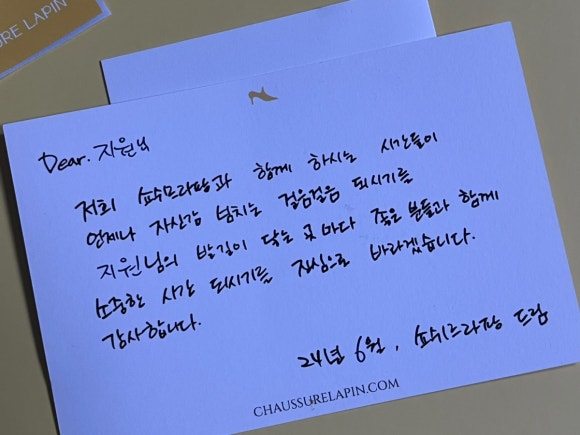 SURE LAPIN
Dear. 지원님
저희 쇼쉬르라팡과 함께 하시는 시간들이
언제나 자신감 넘치는 걸음걸음 되시기를
지원님의 발길이 닿는 곳마다 좋은 분들과 함께
소중한 시간 되시기를 진심으로 바라겠습니다.
감사합니다.
24년 6월, 쇼쉬르라팡 드림
CHAUSSURELAPIN.COM